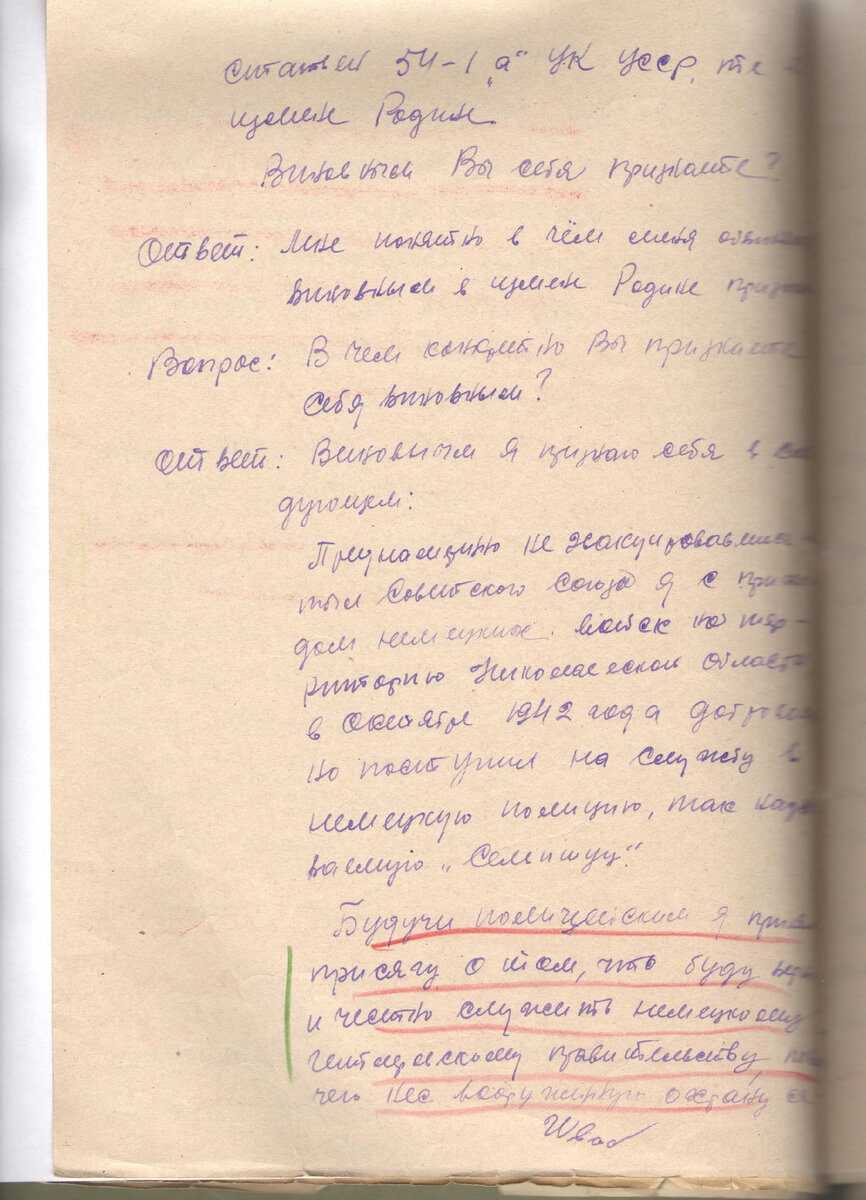 статьей 54-1 „а" УК УССР, т.е. в
измене Родине.
Виновным Вы себя признаете?
Ответ: Мне понятно в чём меня обвиняют
виновным в измене Родине признаю
Вопрос: В чем конкретно Вы признаете
себя виновным?
Ответ: Виновным я признаю себя в сле
дующем:
Преднамеренно не эвакуировавшись в
тыл Советского Союза я с прихо
дом немецких войск на тер-
риторию Николаевской области
в октябре 1942 года доброволь
но поступил на службу в
немецкую полицию, так назы
ваемую „Сельпшуц".
Будучи полицейским я принял
присягу о том, что буду верно
и честно служить немецкому
гитлеровскому правительству, после
чего нес вооруженную охрану
Шваб